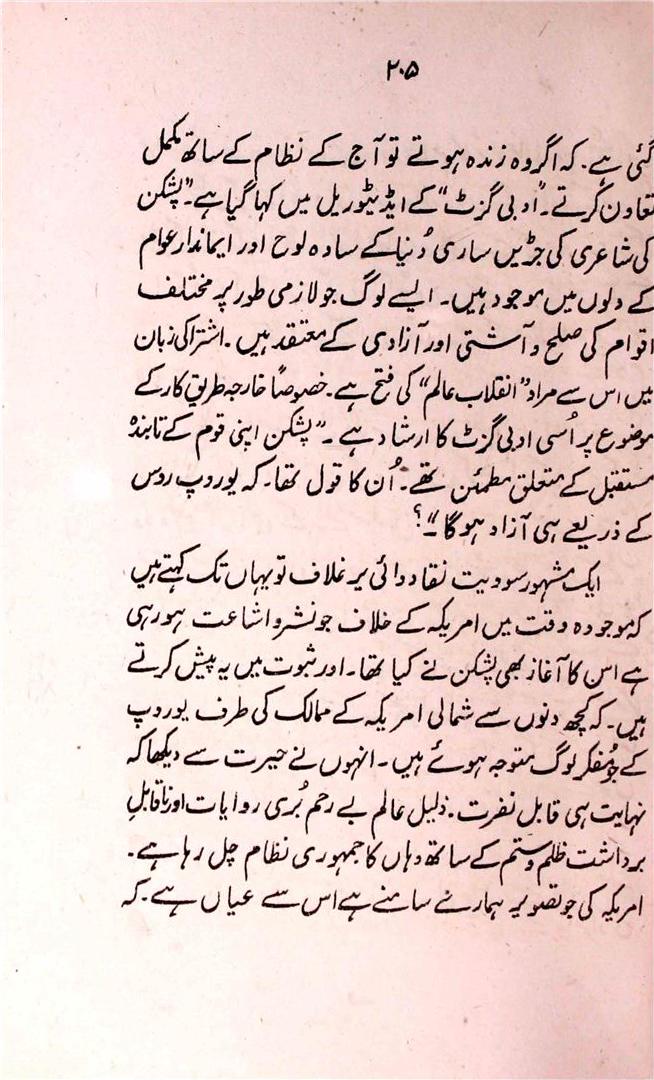 ۲۰۵
گئی ہے۔ کہ اگر وہ زندہ ہوتے تو آج کے نظام کے ساتھ مکمل
تعاون کرتے۔ "ادبی گزٹ" کے ایڈیٹوریل میں کہا گیا ہے۔ "پشکن
کی شاعری کی جڑیں ساری دُنیا کے سادہ لوح اور ایماندار عوام
کے دلوں میں موجود ہیں۔ ایسے لوگ جو لازمی طور پر مختلف
اقوام کی صلح و آشتی اور آزادی کے معتقد ہیں۔ اشتراکی زبان
میں اس سے مراد "انقلاب عالم" کی فتح ہے۔ خصوصاً خارجہ طریق کار کے
موضوع پر اُسی ادبی گزٹ کا ارشاد ہے۔ "پشکن اپنی قوم کے تابندہ
مستقبل کے متعلق مطمئن تھے۔ اُن کا قول تھا۔ کہ یوروپ روس
کے ذریعے ہی آزاد ہوگا"۔؟
ایک مشہور سوویت نقاد دائی یر غلاف تو یہاں تک کہتے ہیں
کہ موجودہ وقت میں امریکہ کے خلاف جو نشر و اشاعت ہو رہی
ہے اس کا آغاز بھی پشکن نے کیا تھا۔ اور ثبوت میں یہ پیش کرتے
ہیں۔ کہ کچھ دنوں سے شمالی امریکہ کے ممالک کی طرف یوروپ
کے جو مُفکر لوگ متوجہ ہوئے ہیں۔ انہوں نے حیرت سے دیکھا کہ
نہایت ہی قابل نفرت۔ ذلیل عالم بے رحم بُری روایات اور ناقابلِ
برداشت ظلم و ستم کے ساتھ وہاں کا جمہوری نظام چل رہا ہے۔
امریکہ کی جو تصویر ہمارے سامنے ہے اس سے عیاں ہے۔ کہ